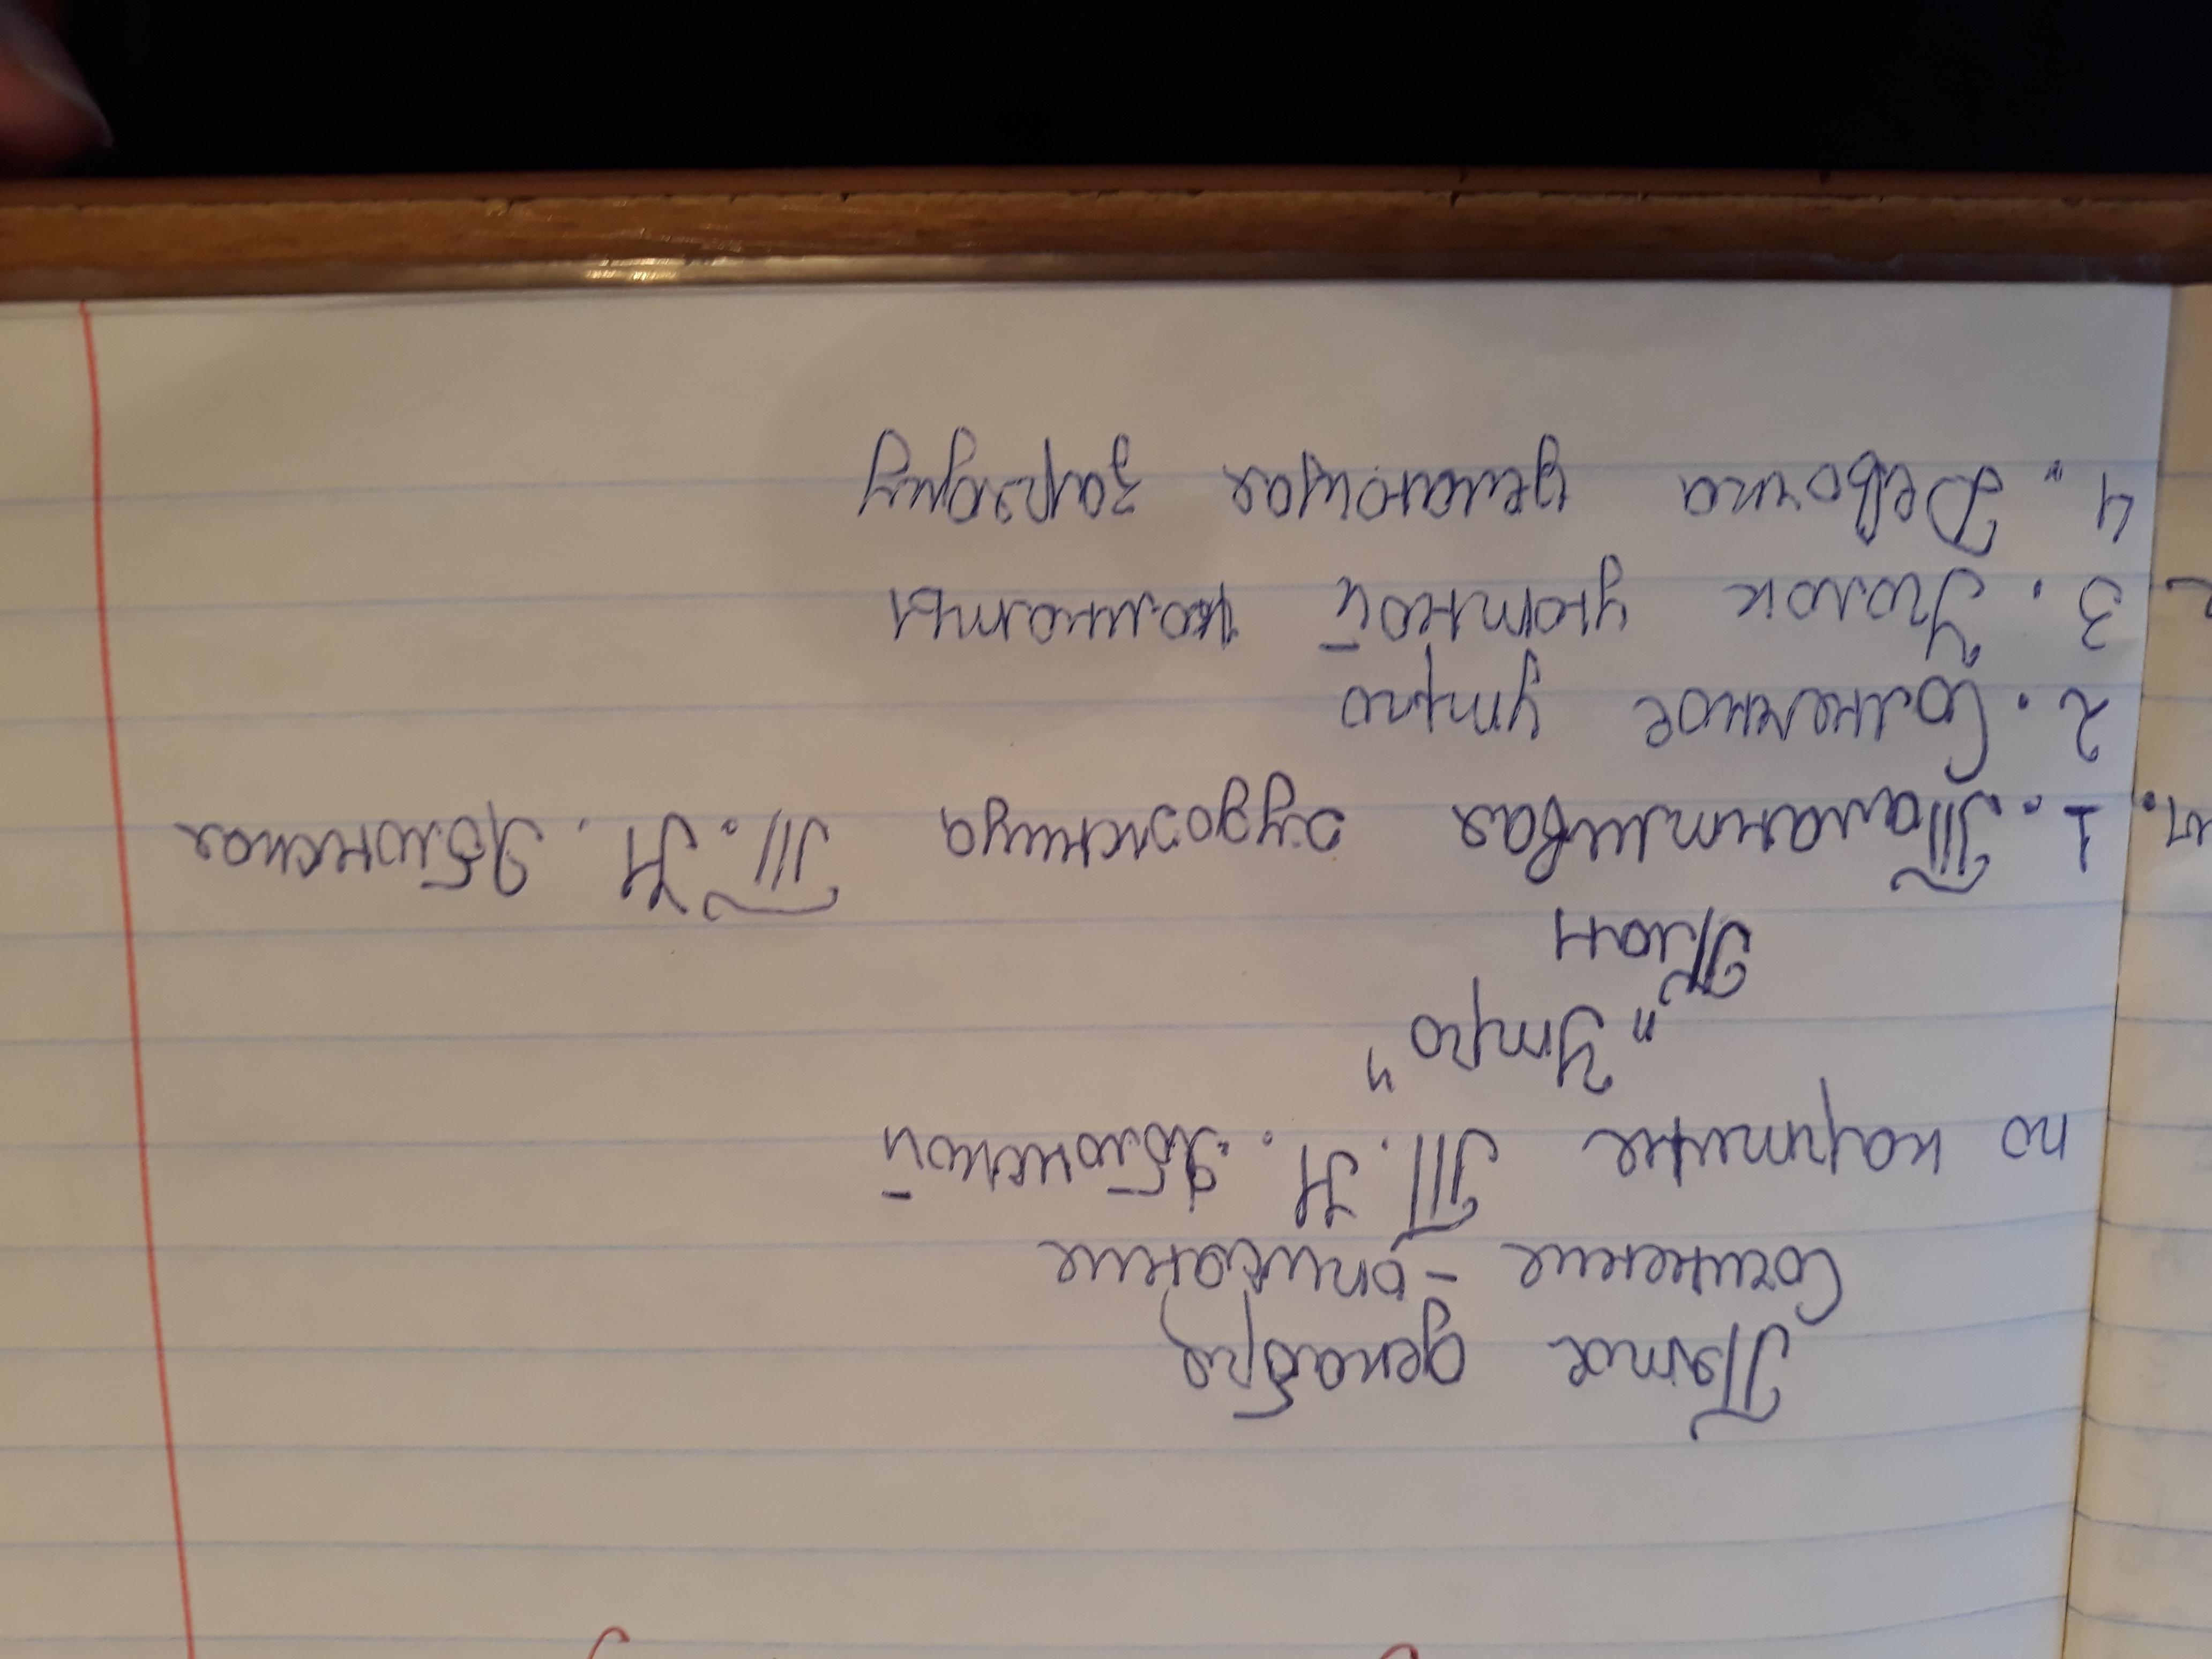 Пятое декабря
Сочинение - описание
по картине Т. Н. Яблонской
"Утро"
План
1. Талантливая художница Т. Н. Яблонская
2. Солнечное утро
3. Уголок уютной комнаты
4. Девочка делающая зарядку